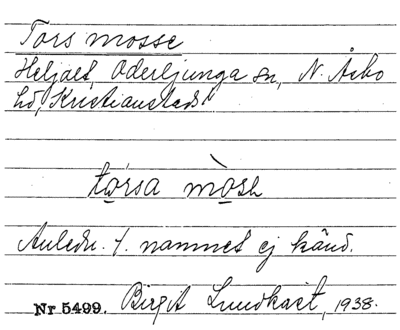 Tors mosse
Heljalt, Oderljunga sn, N. Åsbo
hd, Kristianstads l
tɷ́rsa mɷ̀sḁ
Anledn. t. namnet ej känd.
Nr 5499. Birgit Lundkvist, 1938.